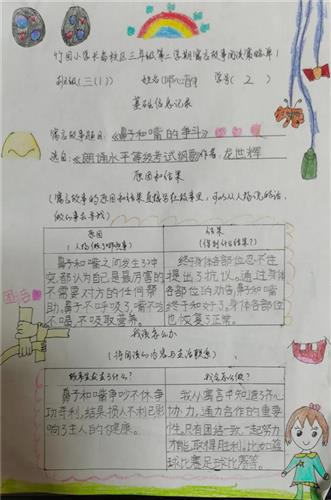 竹园小学长岛校区三年级第二学期寓言故事阅读
班级(三(1))　姓名　学号(2)
基础信息记录
寓言故事题目:《鼻子和嘴的争斗》
选自:《朗诵水平等级考试纲要》作者:龙世辉
原因和结果
(寓言故事的原因和结果直接写在故事里,可以从人物说的话,
做的事去寻找)
原因
(人物做了哪些事)
鼻子和嘴之间发生了冲
突,都认为自己是最厉害的
不需要对方的任何帮
助,鼻子不呼吸了,嘴不吃
不喝,不吸取营养。
结果
(得到什么结果?)
终于身体各部位忍不住
提出了抗议。通过身体
各部位的劝告,鼻子和嘴
终于和好了。身体各部位
也恢复了正常。
团结
我该怎么办
(将阅读的内容与生活联系)
故事主要讲了什么?
鼻子和嘴争吵不休,争
功夺利,结果损人不利己影
响了主人的健康。
我会怎么做?
我从寓言中知道了齐心
协力,通力合作的重要
性。只有团结一致,一起努力
才能取得胜利。比如篮
球比赛足球比赛等。